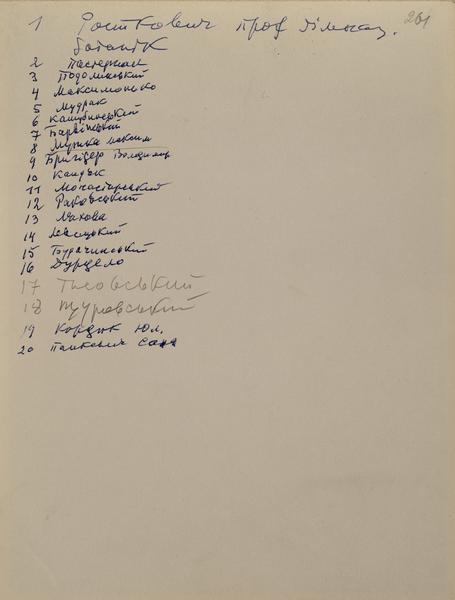 261
1 Росткович проф гімназ.
ботанік
2 Пастернак
3 Подолинський
4 Максимонько
5 Мудрак
6 Кашубинський
7 Барвінський
8 Музика Максим
9 Бригідер Володимир
10 Кандяк
11 Монастирський
12 Раковський
13 Махова
14 Левицький
15 Бурачинський
16 Дурделло
17
18 Щуровський
19 Кордюк Юл.
20 Панкевич